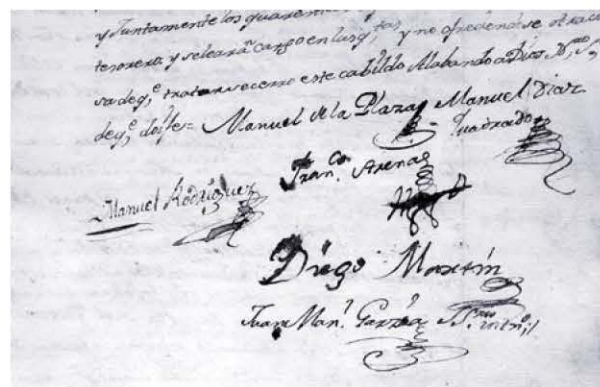 y Juntamente los quarenta
tesorero, y se leará cargo en las q.tas, y no ofreciendose otra co
sa de q.e tratar se cerro este cabildo Alabando a Dios N.ro S.r
de q.e doi fe=
Manuel de la Plaza Manuel Diaz
Quadrado
Fran.co Arenas
Manuel Rodriguez
Diego Martin
Juan Man.l Garzia S.rio intno